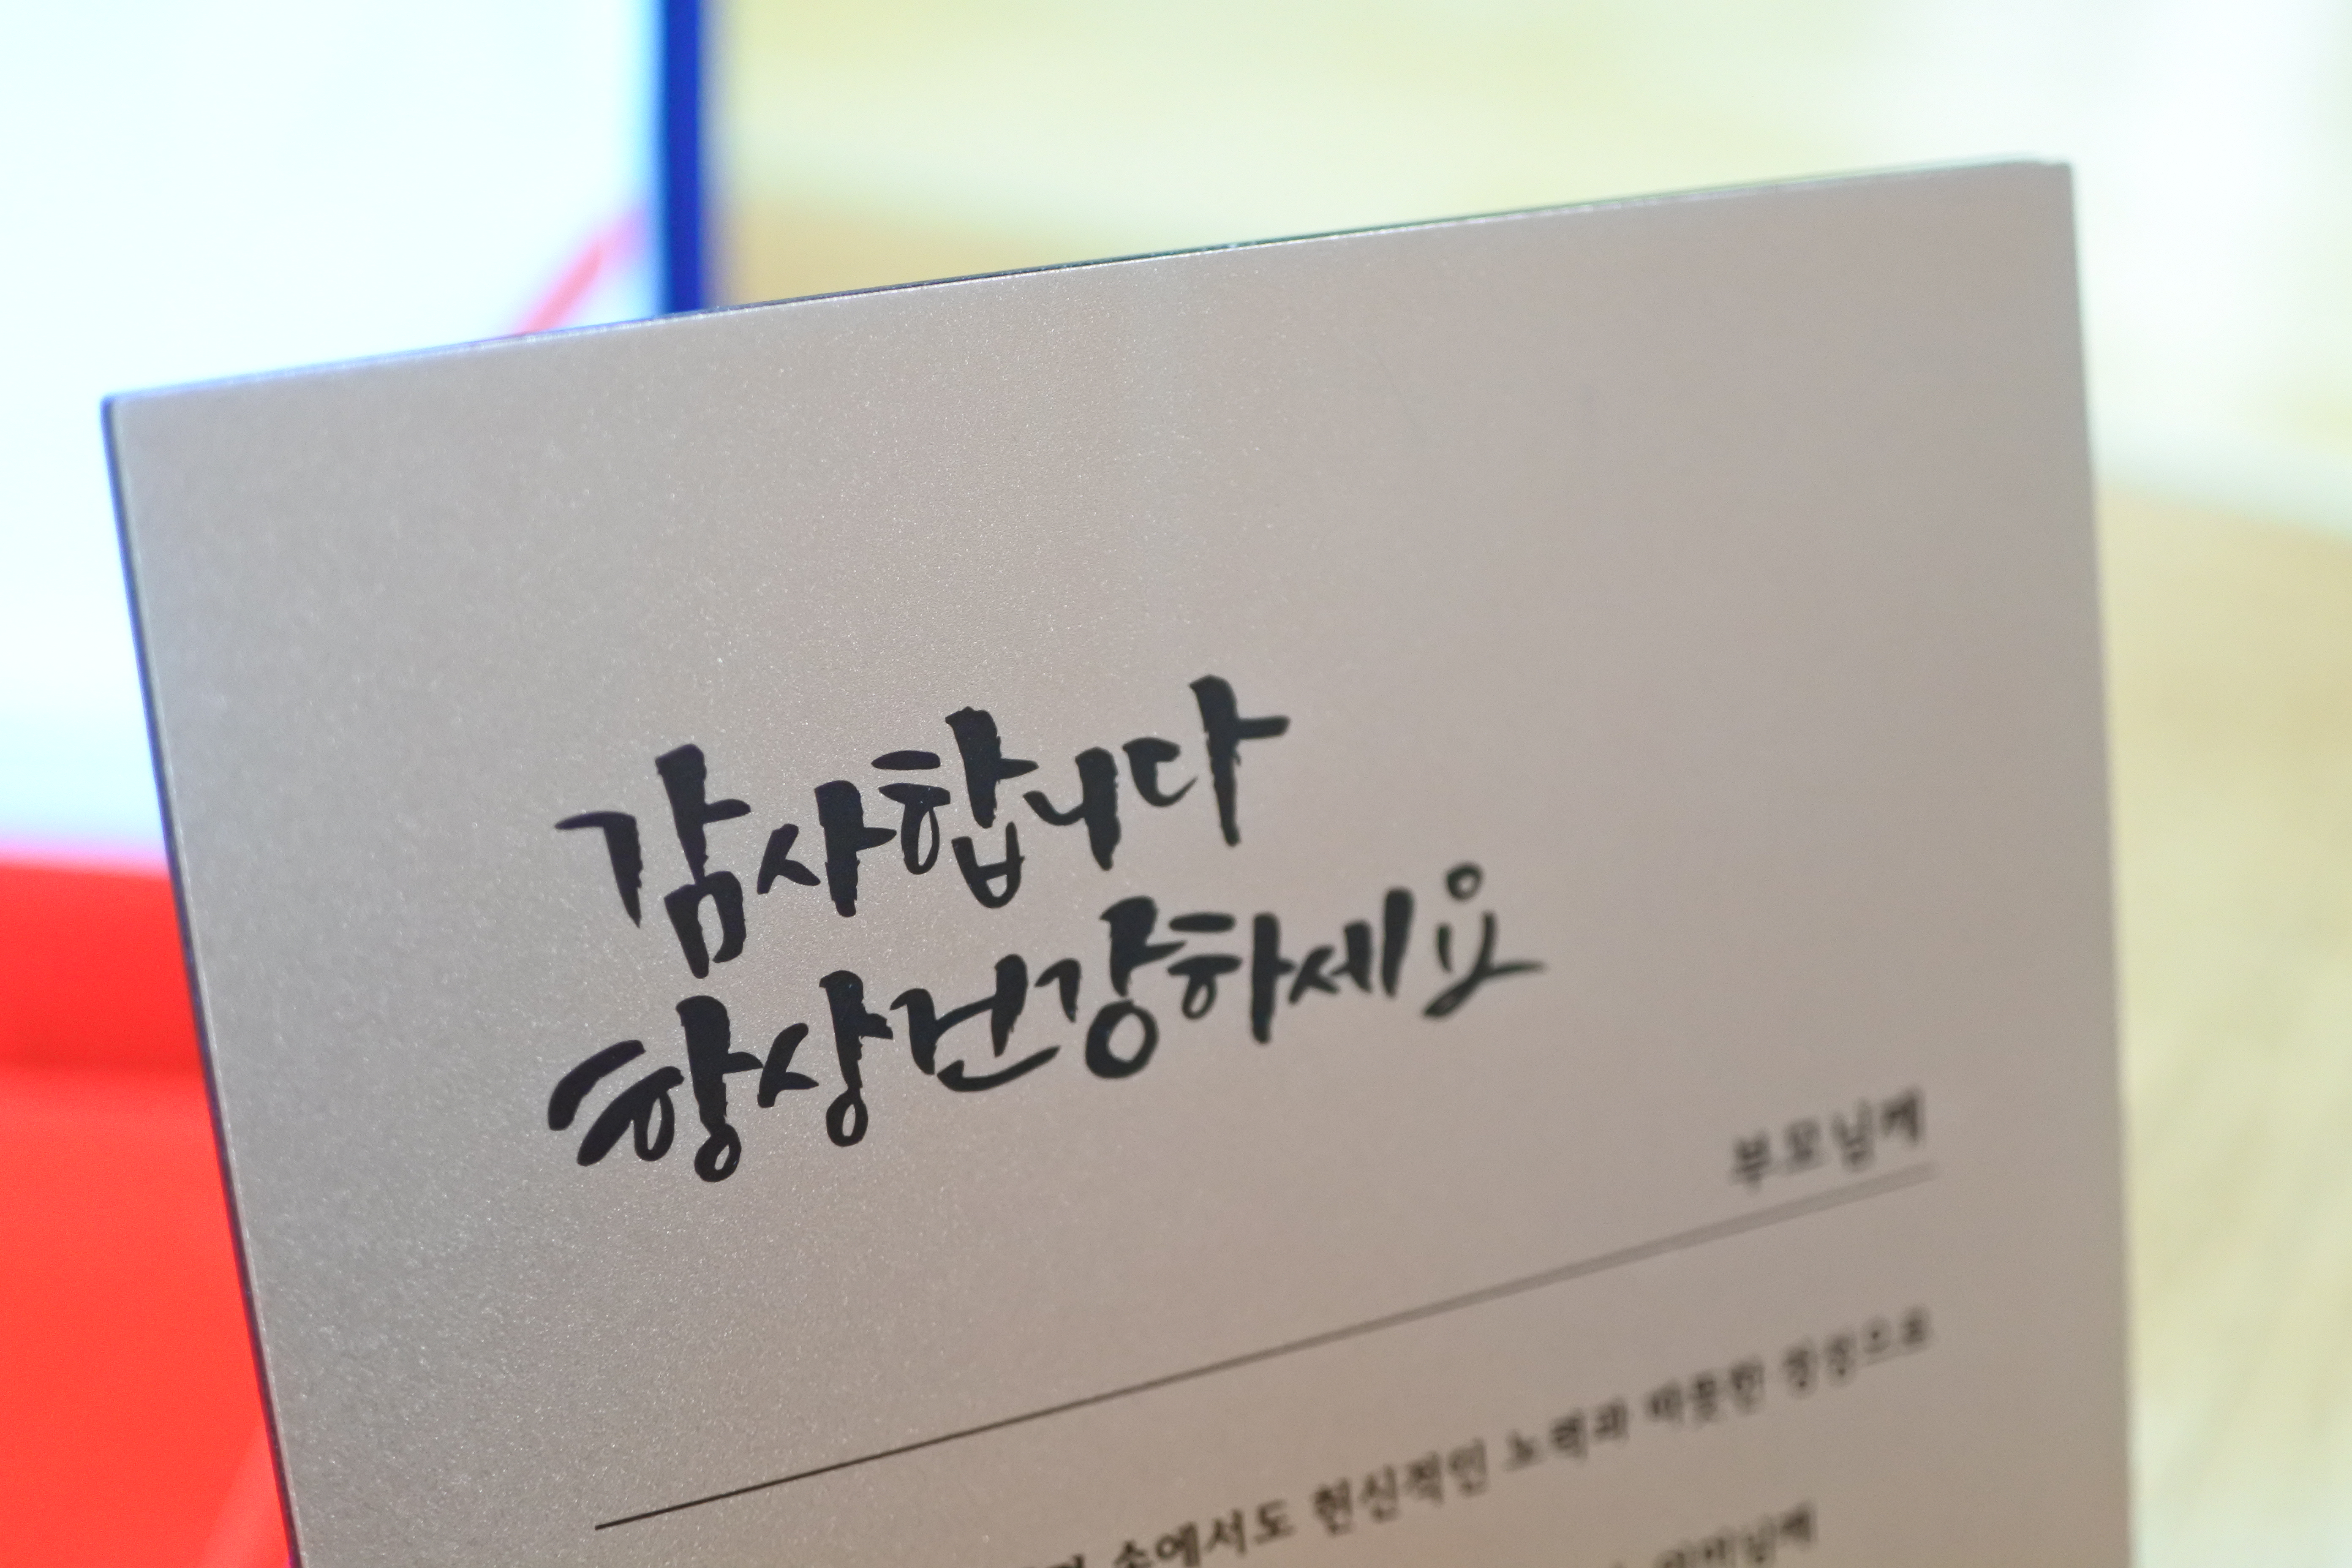 감사합니다
항상건강하세요
부모님께
속에서도 헌신적인 노력과 따뜻한 정성으로